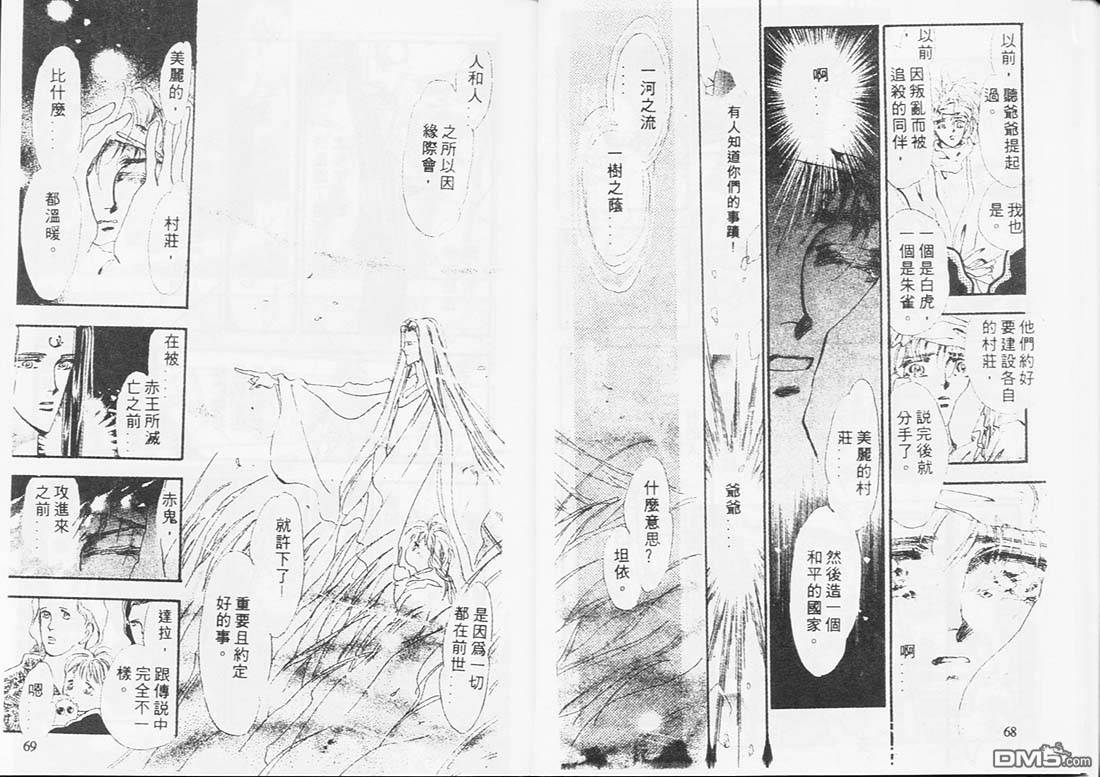 以前，聽爺爺提起
過。
我也
是。
以前，
因叛亂而被
追殺的同伴，
一個是白虎，
一個是朱雀。
他們約好
要建設各自
的村莊，
說完後就
分手了。
啊……
啊……
美麗的村
莊
然後造一個
和平的國家。
有人知道你們的事蹟！
爺爺……
一河之流
……
一樹之蔭
……
什麼意思？
坦依。
68
人和人……
之所以因
緣際會，
是因為一切
都在前世
就許下了—
重要且約定
好的事。
美麗的，
比什麼……
村莊，
都溫暖。
在被……
赤王所滅
亡之前……
赤鬼，
攻進來
之前……
達拉，
跟傳說中
完全不一
樣。
嗯……
69
DM5.com